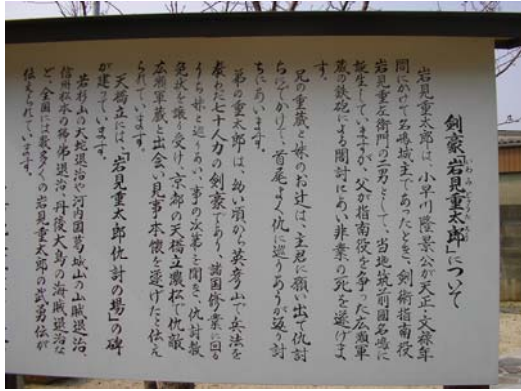 剣豪「岩見重太郎」について
いわみじゅうたろう
岩見重太郎は、小早川隆景公が天正・文禄年
間にかけて名嶋城主であったとき、剣術指南役
岩見重左衛門の二男として、当地筑前國名嶋に
誕生していますが、父が指南役を争った広瀬軍
蔵の鉄砲による闇討にあい非業の死を遂げま
す。
兄の重蔵と妹のお辻は、主君に願い出て仇討
ちにでかけて、首尾よく仇に巡りあうが返り討
ちにあいます。
弟の重太郎は、幼い頃から英彦山で兵法を
教わった七十人力の剣豪であり、諸国修業に回る
うち妹と巡りあい、事の次第を聞き、仇討赦
免状を譲り受け、京都の天橋立濃松で仇敵
広瀬軍蔵と出会い見事本懐を遂げたと伝え
られています。
天橋立には、「岩見重太郎仇討の場」の碑
が建っています。
若杉山の大蛇退治や河内國葛城山の山賊退治、
信州松本の狒狒退治、丹後大島の海賊退治な
ど、全国には数多くの岩見重太郎の武勇伝が
伝えられています。